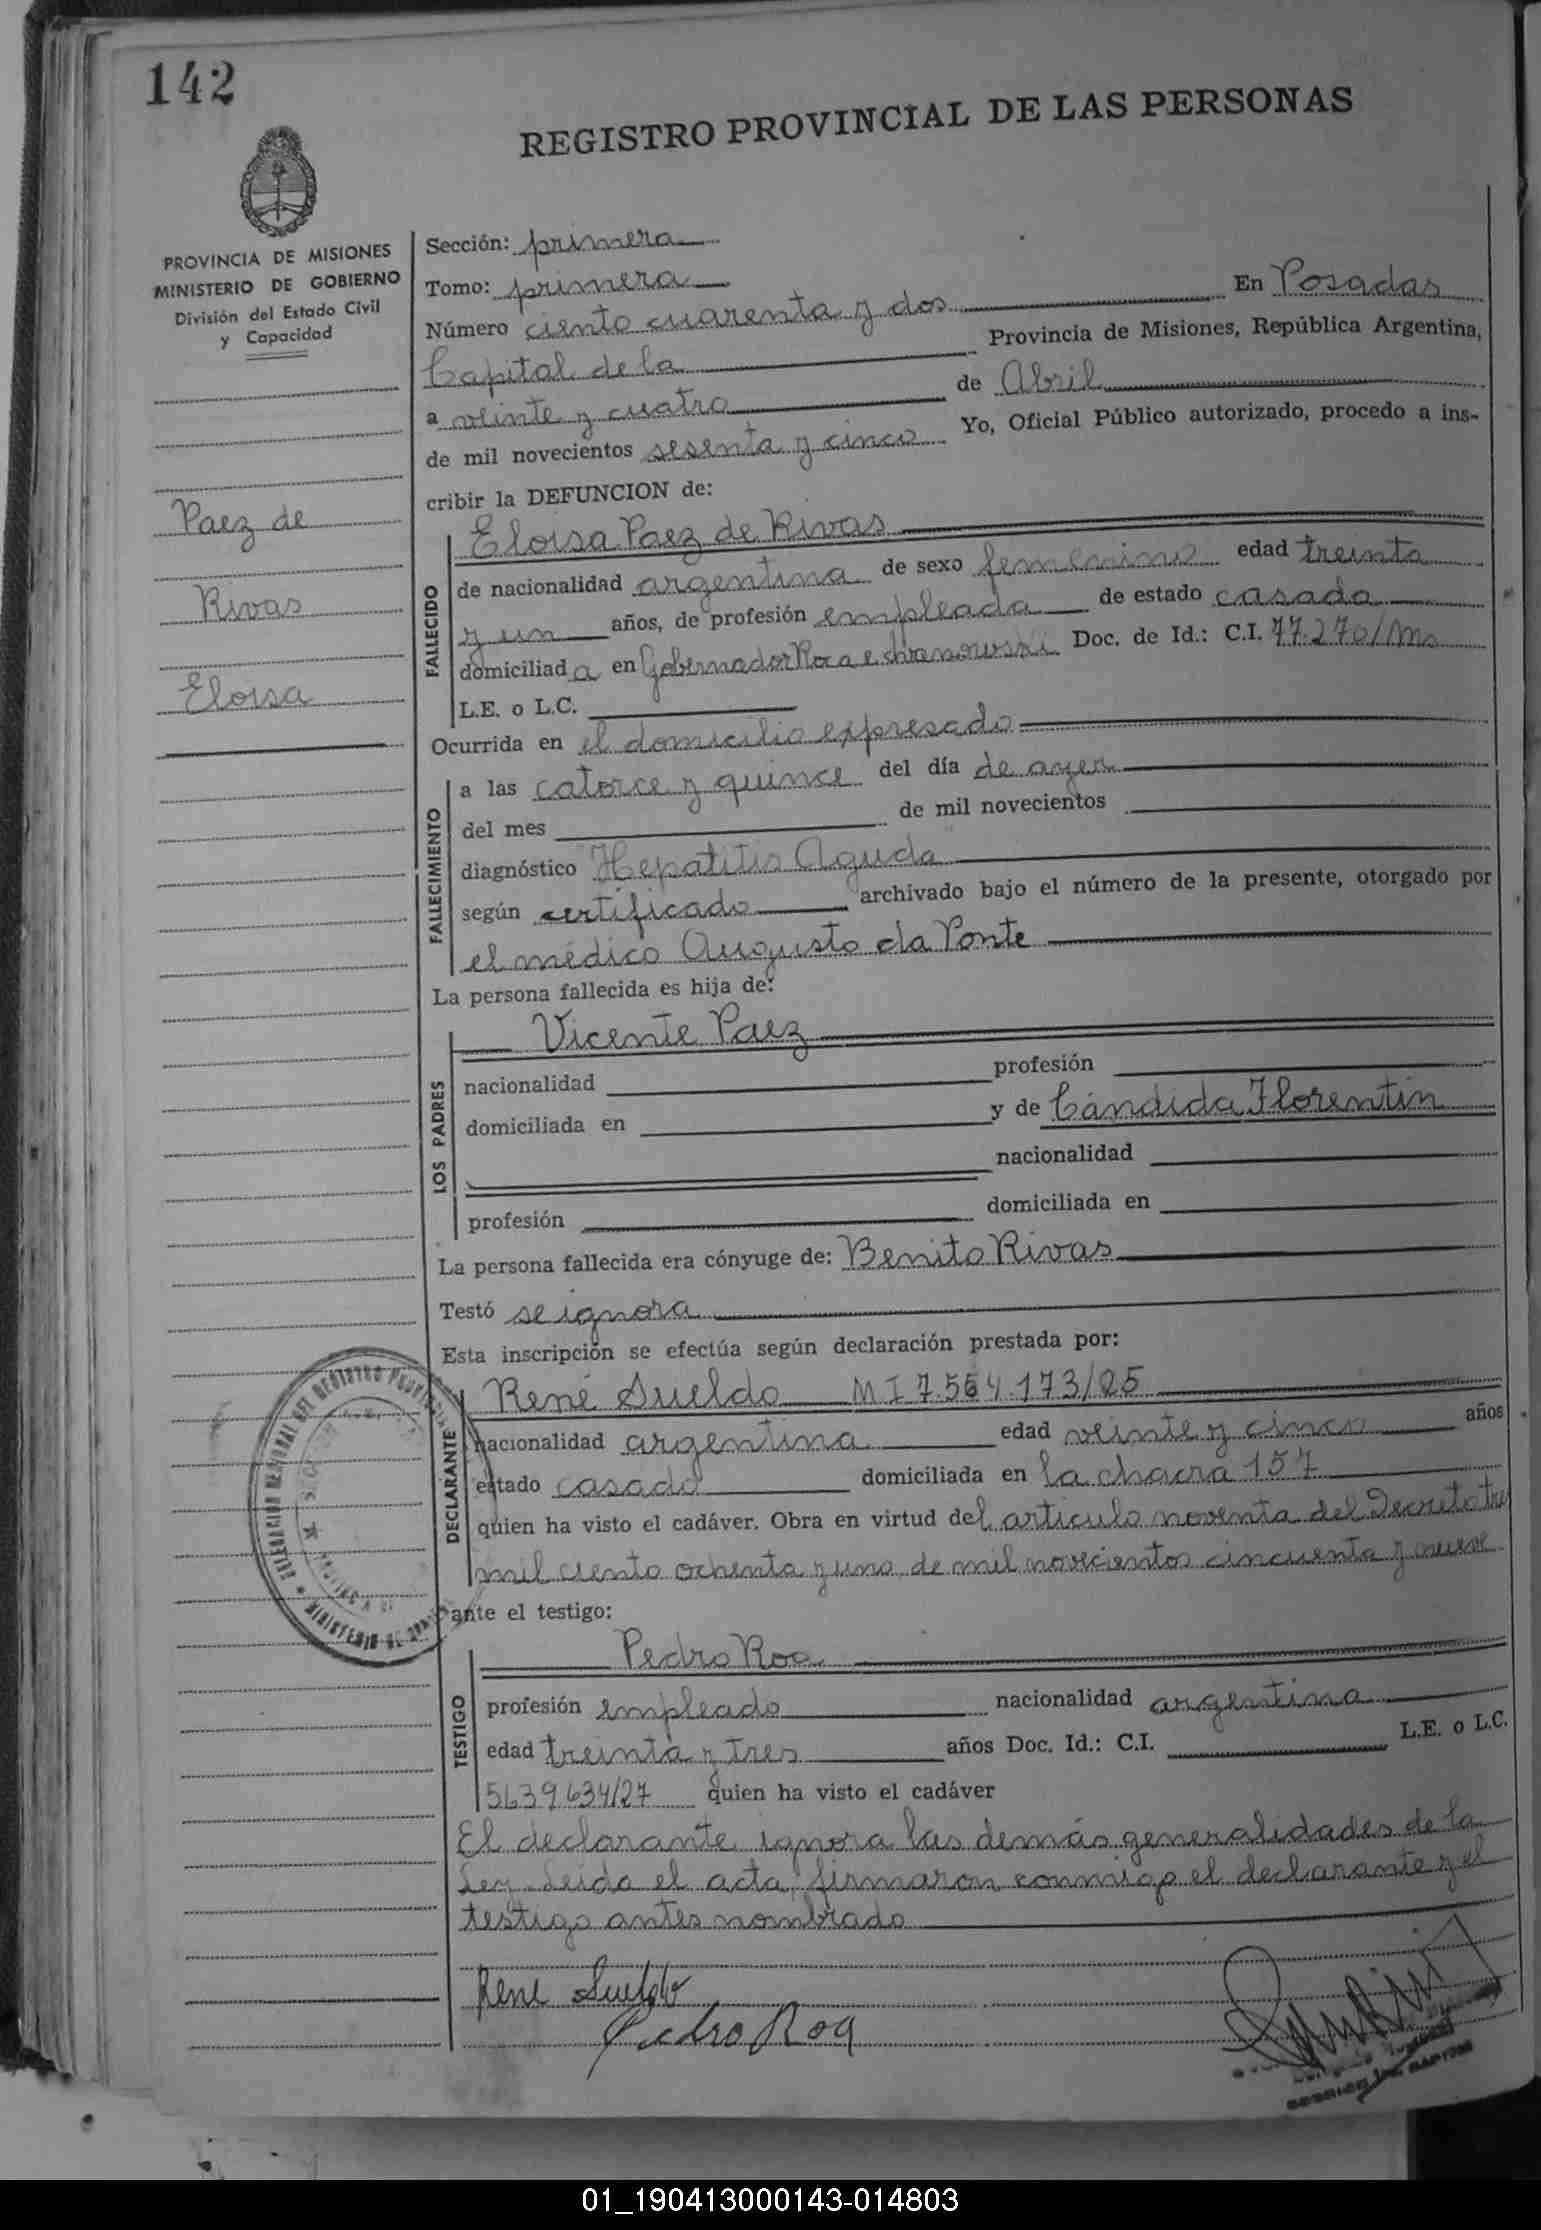 142
REGISTRO PROVINCIAL DE LAS PERSONAS
PROVINCIA DE MISIONES
MINISTERIO DE GOBIERNO
División del Estado Civil
y Capacidad
Paez de
Rivas
Eloisa
Sección: primera
Tomo: primera
Número ciento cuarenta y dos En Posadas
Capital de la Provincia de Misiones, República Argentina,
a veinte y cuatro de Abril
de mil novecientos sesenta y cinco Yo, Oficial Público autorizado, procedo a ins-
cribir la DEFUNCION de:
FALLECIDO
Eloisa Paez de Rivas
de nacionalidad argentina de sexo femenino edad treinta
y un años, de profesión empleada de estado casada
domiciliad a en Gobernador Roca e Doc. de Id.: C.I. 77.270/Ms
L.E. o L.C.
Ocurrida en el domicilio expresado
FALLECIMIENTO
a las catorce y quince del día de ayer
del mes de mil novecientos
diagnóstico "Hepatitis Aguda"
según certificado archivado bajo el número de la presente, otorgado por
el médico Augusto da Ponte
La persona fallecida es hija de:
LOS PADRES
Vicente Paez
nacionalidad profesión
domiciliada en y de Cándida Florentin
nacionalidad
profesión domiciliada en
La persona fallecida era cónyuge de: Benito Rivas
Testó se ignora
Esta inscripción se efectúa según declaración prestada por:
DECLARANTE
René Sueldo M I 7.554.173/25
nacionalidad argentina edad veinte y cinco años
estado casado domiciliada en la chacra 157
quien ha visto el cadáver. Obra en virtud del articulo noventa del Decreto tres
mil ciento ochenta y uno, de mil novecientos cincuenta y nueve
ante el testigo:
TESTIGO
Pedro Roa
profesión empleado nacionalidad argentina
edad treinta y tres años Doc. Id.: C.I. L.E. o L.C.
5639634/27 quien ha visto el cadáver
El declarante ignora las demás generalidades de la
Ley. Leída el acta, firmaron conmigo el declarante y el
testigo antes nombrado
René Sueldo
Pedro Roa
01_190413000143-014803